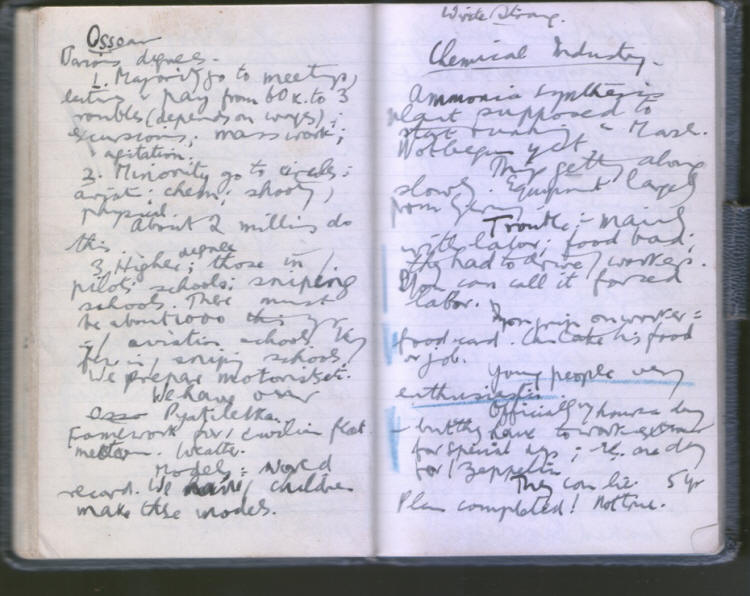 Ossoav
Various degrees.
1. Majority go to meetings,
listing & pay from 60 k. to 3
roubles (depends on wages);
excursions; mass work;
agitation.
2. Minority go to circles;
aviat; chem; shooting,
physical. About 2 million do
this.
3. Higher degree; those in
pilots schools; sniping
schools. There must
be about 1000 this yr
aviation schools very
few in sniping schools
We prepare motorists.
We have our
Osso Pyatiletka.
Framework for civilian fleet.
Weather.
Models = World
record. We have children
make these models.
Write Strang.
Chemical Industry.
Ammonia synthesis
plant supposed to
start running in March.
Not begun yet.
They getting along
slowly. Equipment largely
from Germany.
Trouble = mainly
with labor; food bad;
they had to drive workers.
You can call it forced
labor.
Iron grip on worker =
food card. Can take his food
or job.
Young people very
enthusiastic.
Officially 7 hours a day
- but they have to work extra
for special days; i.e. one day
for Zeppelin
They can lie. 5 yr
Plan completed! Not true.